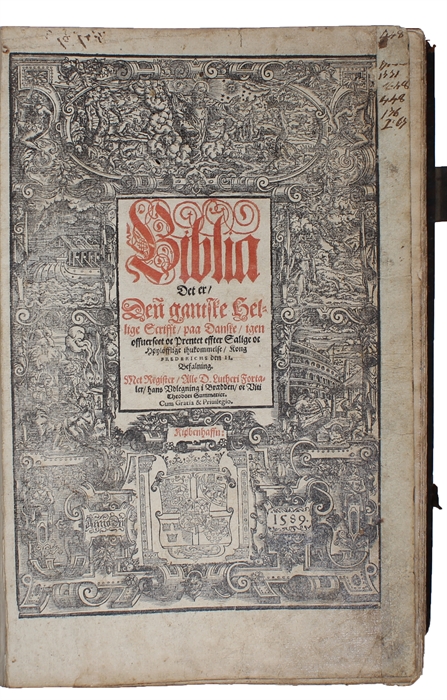 Biblia
Det er/
Den gantske Hel-
lige Scrifft/ paa Danske/ igen
offuerseet oc Prentet effter Salige oc
Høylofflige ihukommelse/ Kong
FREDERICHS den II.
Befalning.
Met Register/ Alle D. Lutheri Forta-
ler/ hans Vdlegning i Brædden/ oc Viti
Theodori Summarier.
Cum Gratia & Privilegio.
Kiøbenhaffn.
Anno Dñi
1589.